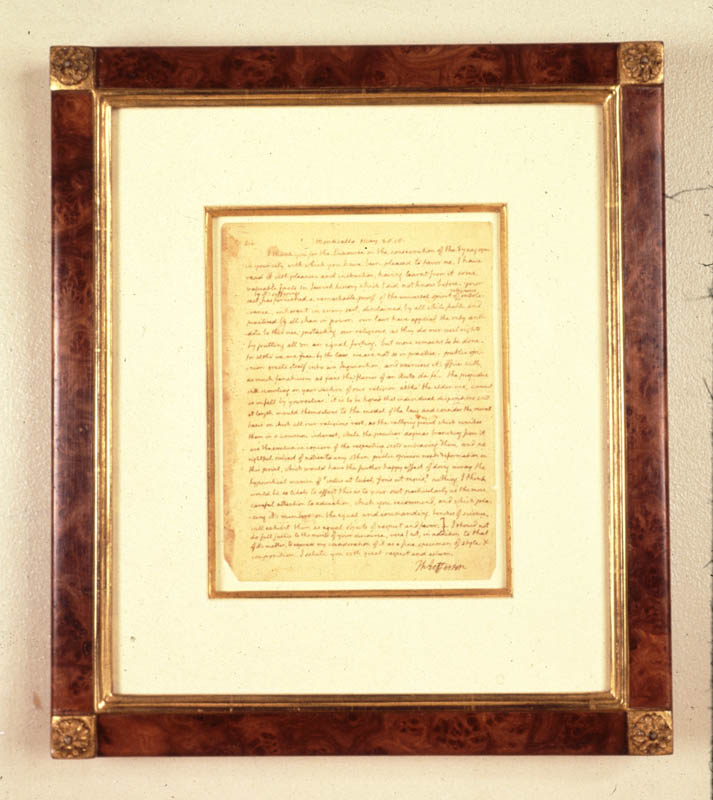 Sir Monticello May 28. 18.
I thank you for the Discourse on the consecration of the Synagogue
in your city, with which you have been pleased to favor me. I have
read it with pleasure and instruction, having learnt from it some
valuable facts in Jewish history which I did not know before. your
sect by it's sufferings has furnished a remarkable proof of the universal spirit of religious intole-
-rance, inherent in every sect, disclaimed by all while feeble, and
practised by all when in power. our laws have applied the only anti-
-dote to this vice, protecting our religious, as they do our civil rights
by putting all on an equal footing. but more remains to be done.
for altho' we are free by the law, we are not so in practice. public opi-
-nion erects itself into an Inquisition, and exercises it's office with
as much fanaticism as fans the flames of an Auto da fe. the prejudice
still scowling on your section of our religion, altho' the elder one, cannot
be unfelt by yourselves. it is to be hoped that individual dispositions will
at length mould themselves to the model of the law, and consider the moral
basis on which all our religions rest, as the rallying point which unites
them in a common interest; while the peculiar dogmas branching from it
are the exclusive concern of the respective sects embracing them, and no
rightful subject of notice to any other. public opinion needs reformation on
this point, which would have the further happy effect of doing away the
hypocritical maxim of 'intus ut lubet, foris ut moris.' nothing I think
would be so likely to effect this as to your sect particularly as the more
careful attention to education, which you recommend, and which pla-
-cing it's members on the equal and commanding benches of science,
will exhibit them as equal objects of respect and favor. I should not
do full justice to the merits of your discourse, were I not, in addition to that
of it's matter, to express my consideration of it as a fine specimen of style &
composition. I salute you with great respect and esteem.
Th: Jefferson